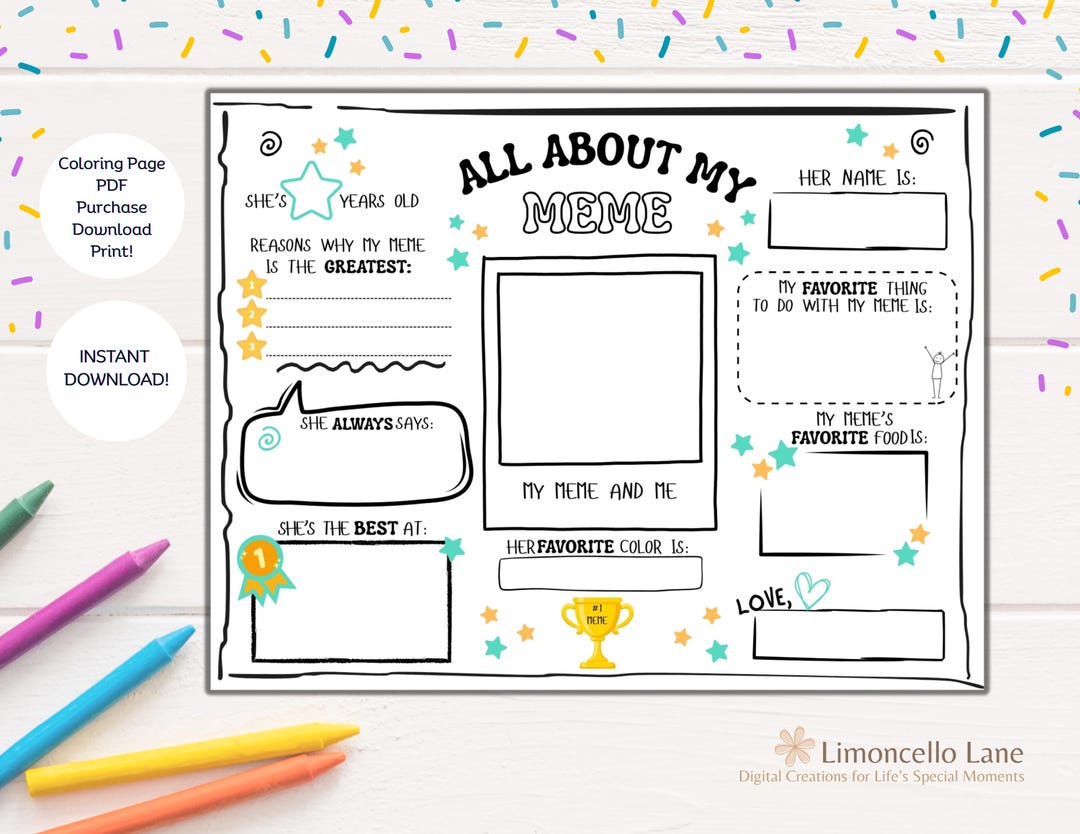 Coloring Page
PDF
Purchase
Download
Print!
INSTANT
DOWNLOAD!
ALL ABOUT MY
MEME
SHE'S YEARS OLD
REASONS WHY MY MEME
IS THE GREATEST:
1
2
3
SHE ALWAYS SAYS:
SHE'S THE BEST AT:
1
MY MEME AND ME
HER FAVORITE COLOR IS:
#1
MEME
HER NAME IS:
MY FAVORITE THING
TO DO WITH MY MEME IS:
MY MEME'S
FAVORITE FOOD IS:
LOVE,
Limoncello Lane
Digital Creations for Life's Special Moments